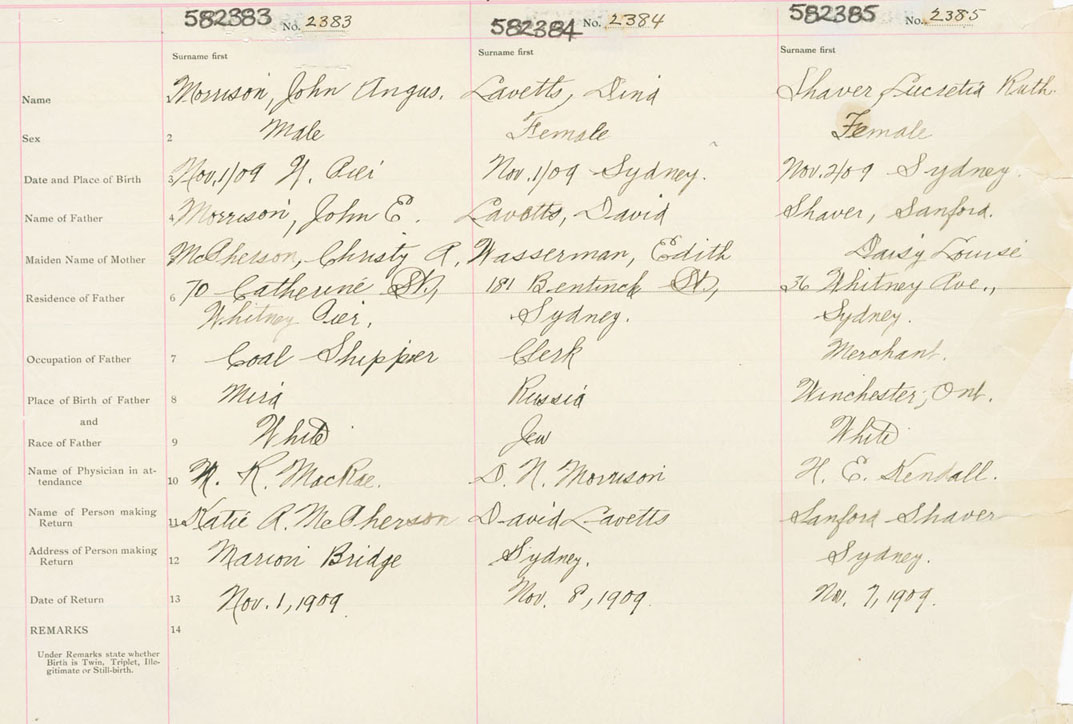 582383 No. 2383 582384 No. 2384 582385 No. 2385
Surname first Surname first Surname first
Name Morrison, John Angus. Lavetts, Dina Shaver, Lucretia Ruth
Sex 2 Male Female Female
Date and Place of Birth 3 Nov. 1/09 W. Pier Nov. 1/09 Sydney. Nov. 2/09 Sydney.
Name of Father 4 Morrison, John E. Lavetts, David Shaver, Sanford.
Maiden Name of Mother McPherson, Christy A. Wasserman, Edith Daisy Louise
Residence of Father 6 70 Catherine St., 181 Bentinck St., 36 Whitney Ave.,
Whitney Pier. Sydney. Sydney.
Occupation of Father 7 Coal Shipper Clerk Merchant.
Place of Birth of Father 8 Mira Russia Winchester, Ont.
and
Race of Father 9 White Jew White
Name of Physician in at-
tendance 10 K. MacRae. D. N. Morrison H. E. Kendall.
Name of Person making
Return 11 Katie A. McPherson David Lavetts Sanford Shaver
Address of Person making
Return 12 Marion Bridge Sydney. Sydney.
Date of Return 13 Nov. 1, 1909. Nov. 8, 1909. Nov. 7, 1909.
REMARKS 14
Under Remarks state whether
Birth is Twin, Triplet, Ille-
gitimate or Still-birth.